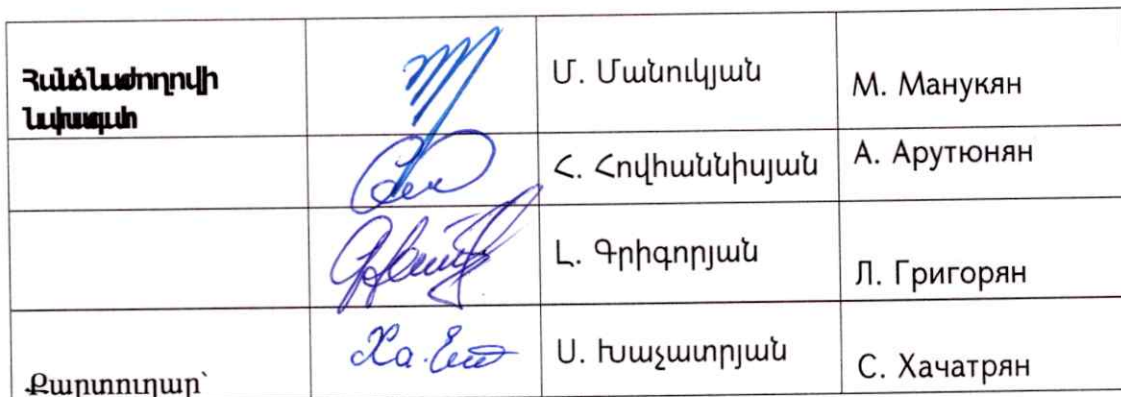 Հանձնաժողովի
Մ. Մանուկյան
М. Манукян
Հ. Հովհաննիսյան
А. Арутюнян
Լ. Գրիգորյան
Л. Григорян
Քարտուղար՝
Ս. Խաչատրյան
С. Хачатрян